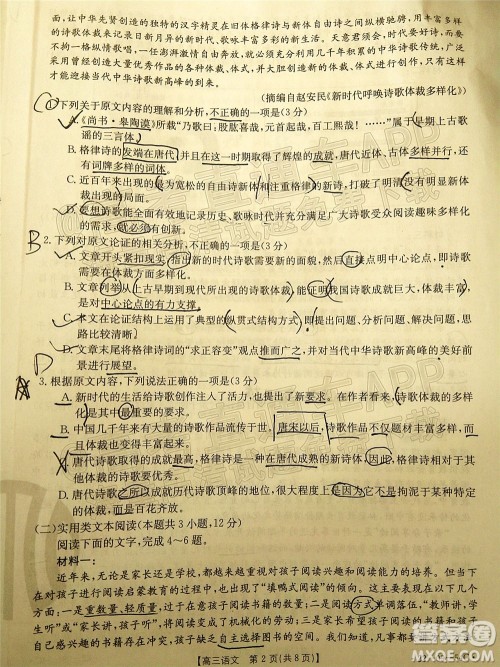 面,让中华先贤创造的独特的汉字精灵在旧体格律诗与新体自由诗之间纵横驰骋,用丰富多样
的诗歌体裁来记录日新月异的新时代、歌咏丰富多彩的新生活。天意君须会,人间要好诗。不
拘一格纵情歌唱,一任澎湃激情自由奔放,就必须充分利用几千年积累的中华诗歌传统,广泛
采用曾经创造大量优秀作品的各种体式、体裁,并且不断求新的体裁、体式进行创作,共同掀
起中华诗歌新高峰的到来。
(摘编自赵安民《新时代呼唤诗歌体裁多样化》)
1.下列关于原文内容的理解和分析,不正确的一项是(3分)
A.《尚书·皋陶谟》所载“乃歌曰:股肱喜哉,元首起哉,百工熙哉!……”属于早期上古歌
谣的三言体。
B.格律诗的发端在唐代,并且在这一时期取得了辉煌的成就,唐代近体、古体多样并行,还
有词牌多样的词体。
C.近百年来出现的最为宽松的自由诗新体和注重格律的新诗,打破了明清没有明显新体
裁出现的局面。
D.要想诗歌能全面有效地记录历史、歌咏时代并充分满足广大诗歌受众阅读趣味多样化
的需求,就必须有创新。
B 2.下列对原文论证的相关分析,不正确的一项是(3分)
A.文章开头紧扣现实,指出新的时代诗歌需要新的面貌,然后直接点明中心论点,即诗歌
需要在体裁方面多样化。
B.文章列举从上古早期到现代所出现的诗歌体裁,能证明我国诗歌成就巨大,体裁丰富,
是对中心论点的有力支撑。
C.本文在论证结构上运用了典型的纵贯式结构方式,即提出问题、分析问题、解决问题,思
路比较清晰。
D.文章末尾将格律诗词的“求正容变”观点推而广之,并对当代中华诗歌新高峰的美好前
景进行展望。
D
3.根据原文内容,下列说法正确的一项是(3分)
A.新时代的生活给诗歌创作注入了活力,也提出了新要求。在作者看来,诗歌体裁的多样
化是其中最重要的要求。
B.中国几千年来有大量的诗歌作品流传于世。唐宋以后,诗歌作品不仅题材丰富多样,而
且体裁也丰富多样。
C.唐代诗歌取得的成就最高,格律诗是一种在唐代成熟的新诗体,因此,格律诗相对于其
他体裁的诗歌要优秀。
D.唐代诗歌之所以成就历代诗歌的顶峰,很大程度上是因为它不是拘泥于某种或某几种
体裁,而是百花齐放。
(二)实用类文本阅读(本题共3小题,12分)
阅读下面的文字,完成4~6题。
材料一:
近年来,无论是家长还是学校,都越来越重视对孩子阅读兴趣和阅读能力的培养。但家长
在对孩子的阅读启蒙教育的过程中,也出现了许多“填鸭式阅读”的倾向,主要表现在以下几个
方面:一是重数量、轻质量,过于在意孩子阅读书籍的数量;二是阅读方式单调落伍,“教师讲,学
生听”或者“家长讲,孩子听”的现象较为普遍;三是家长对孩子阅读书籍的干预过多,忽略孩子
自己感兴趣的阅读书籍
高三语文 第2页(共8页)